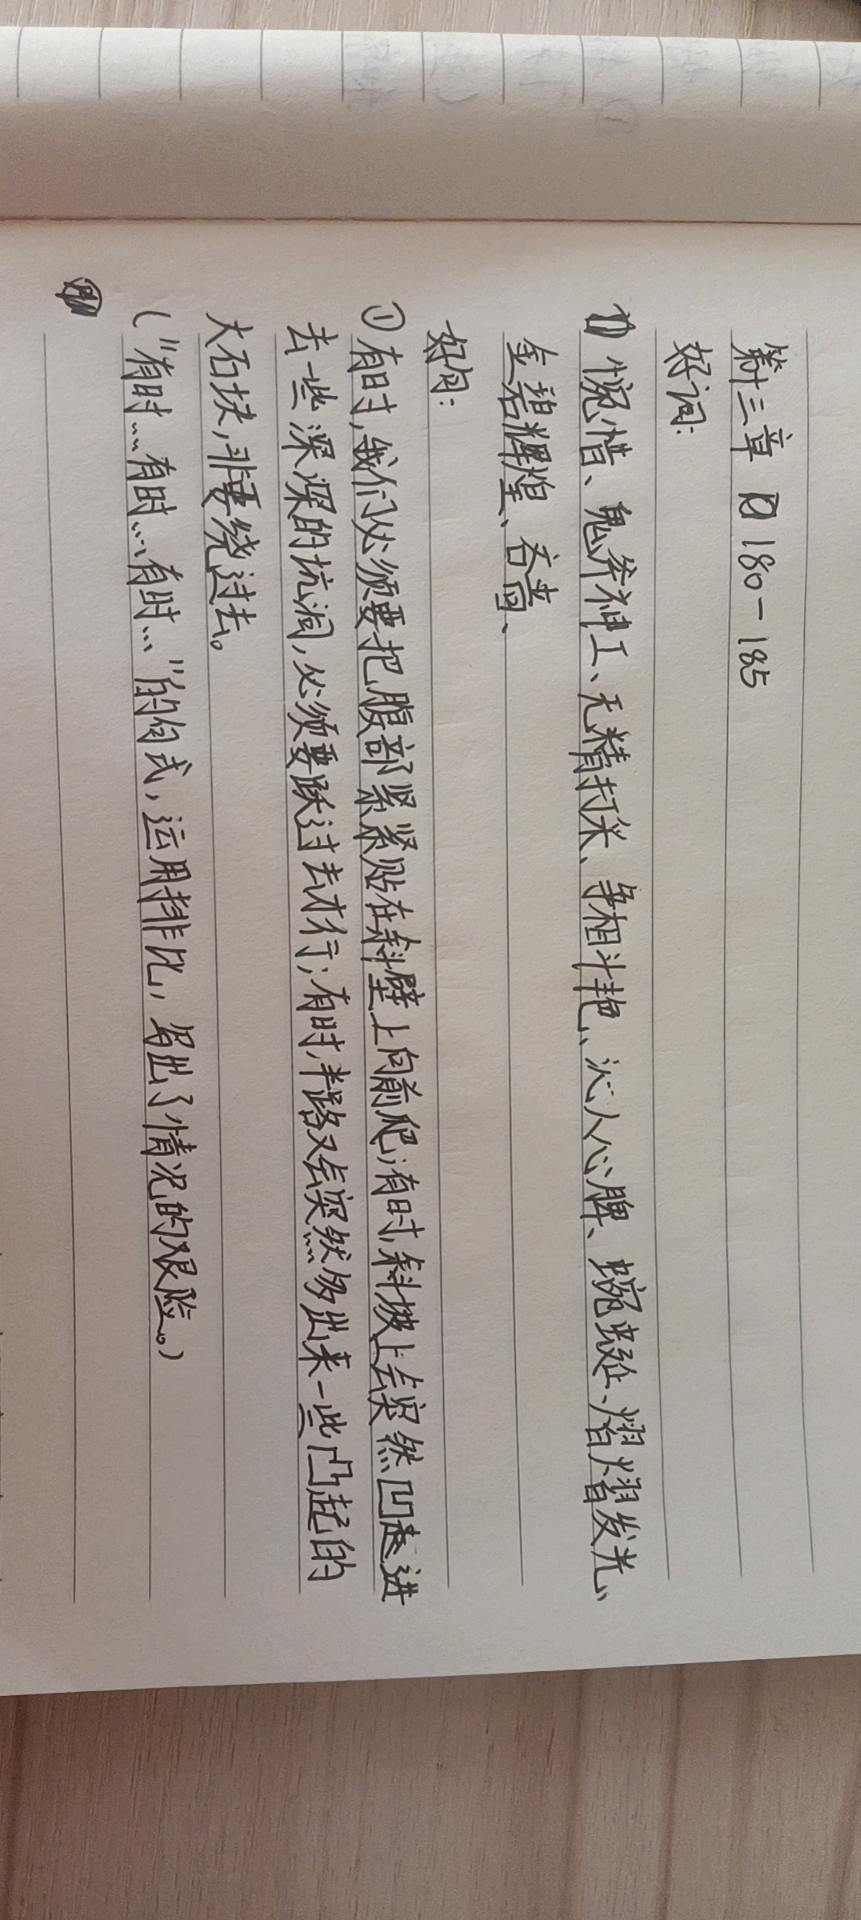 第十三章 180-185
好词:
惋惜、鬼斧神工、无精打采、争相斗艳、沁人心脾、蜿蜒、熠熠发光、
金碧辉煌、吝啬、
好句:
①有时,我们必须要把腹部紧紧贴在斜壁上向前爬;有时,斜坡上会突然凹进
去一些深深的坑洞,必须要跃过去才行;有时,半路又会突然多出来一些凸起的
大石块,非要绕过去。
(“有时…有时…有时…”的句式,运用排比,写出了情况的艰险。)